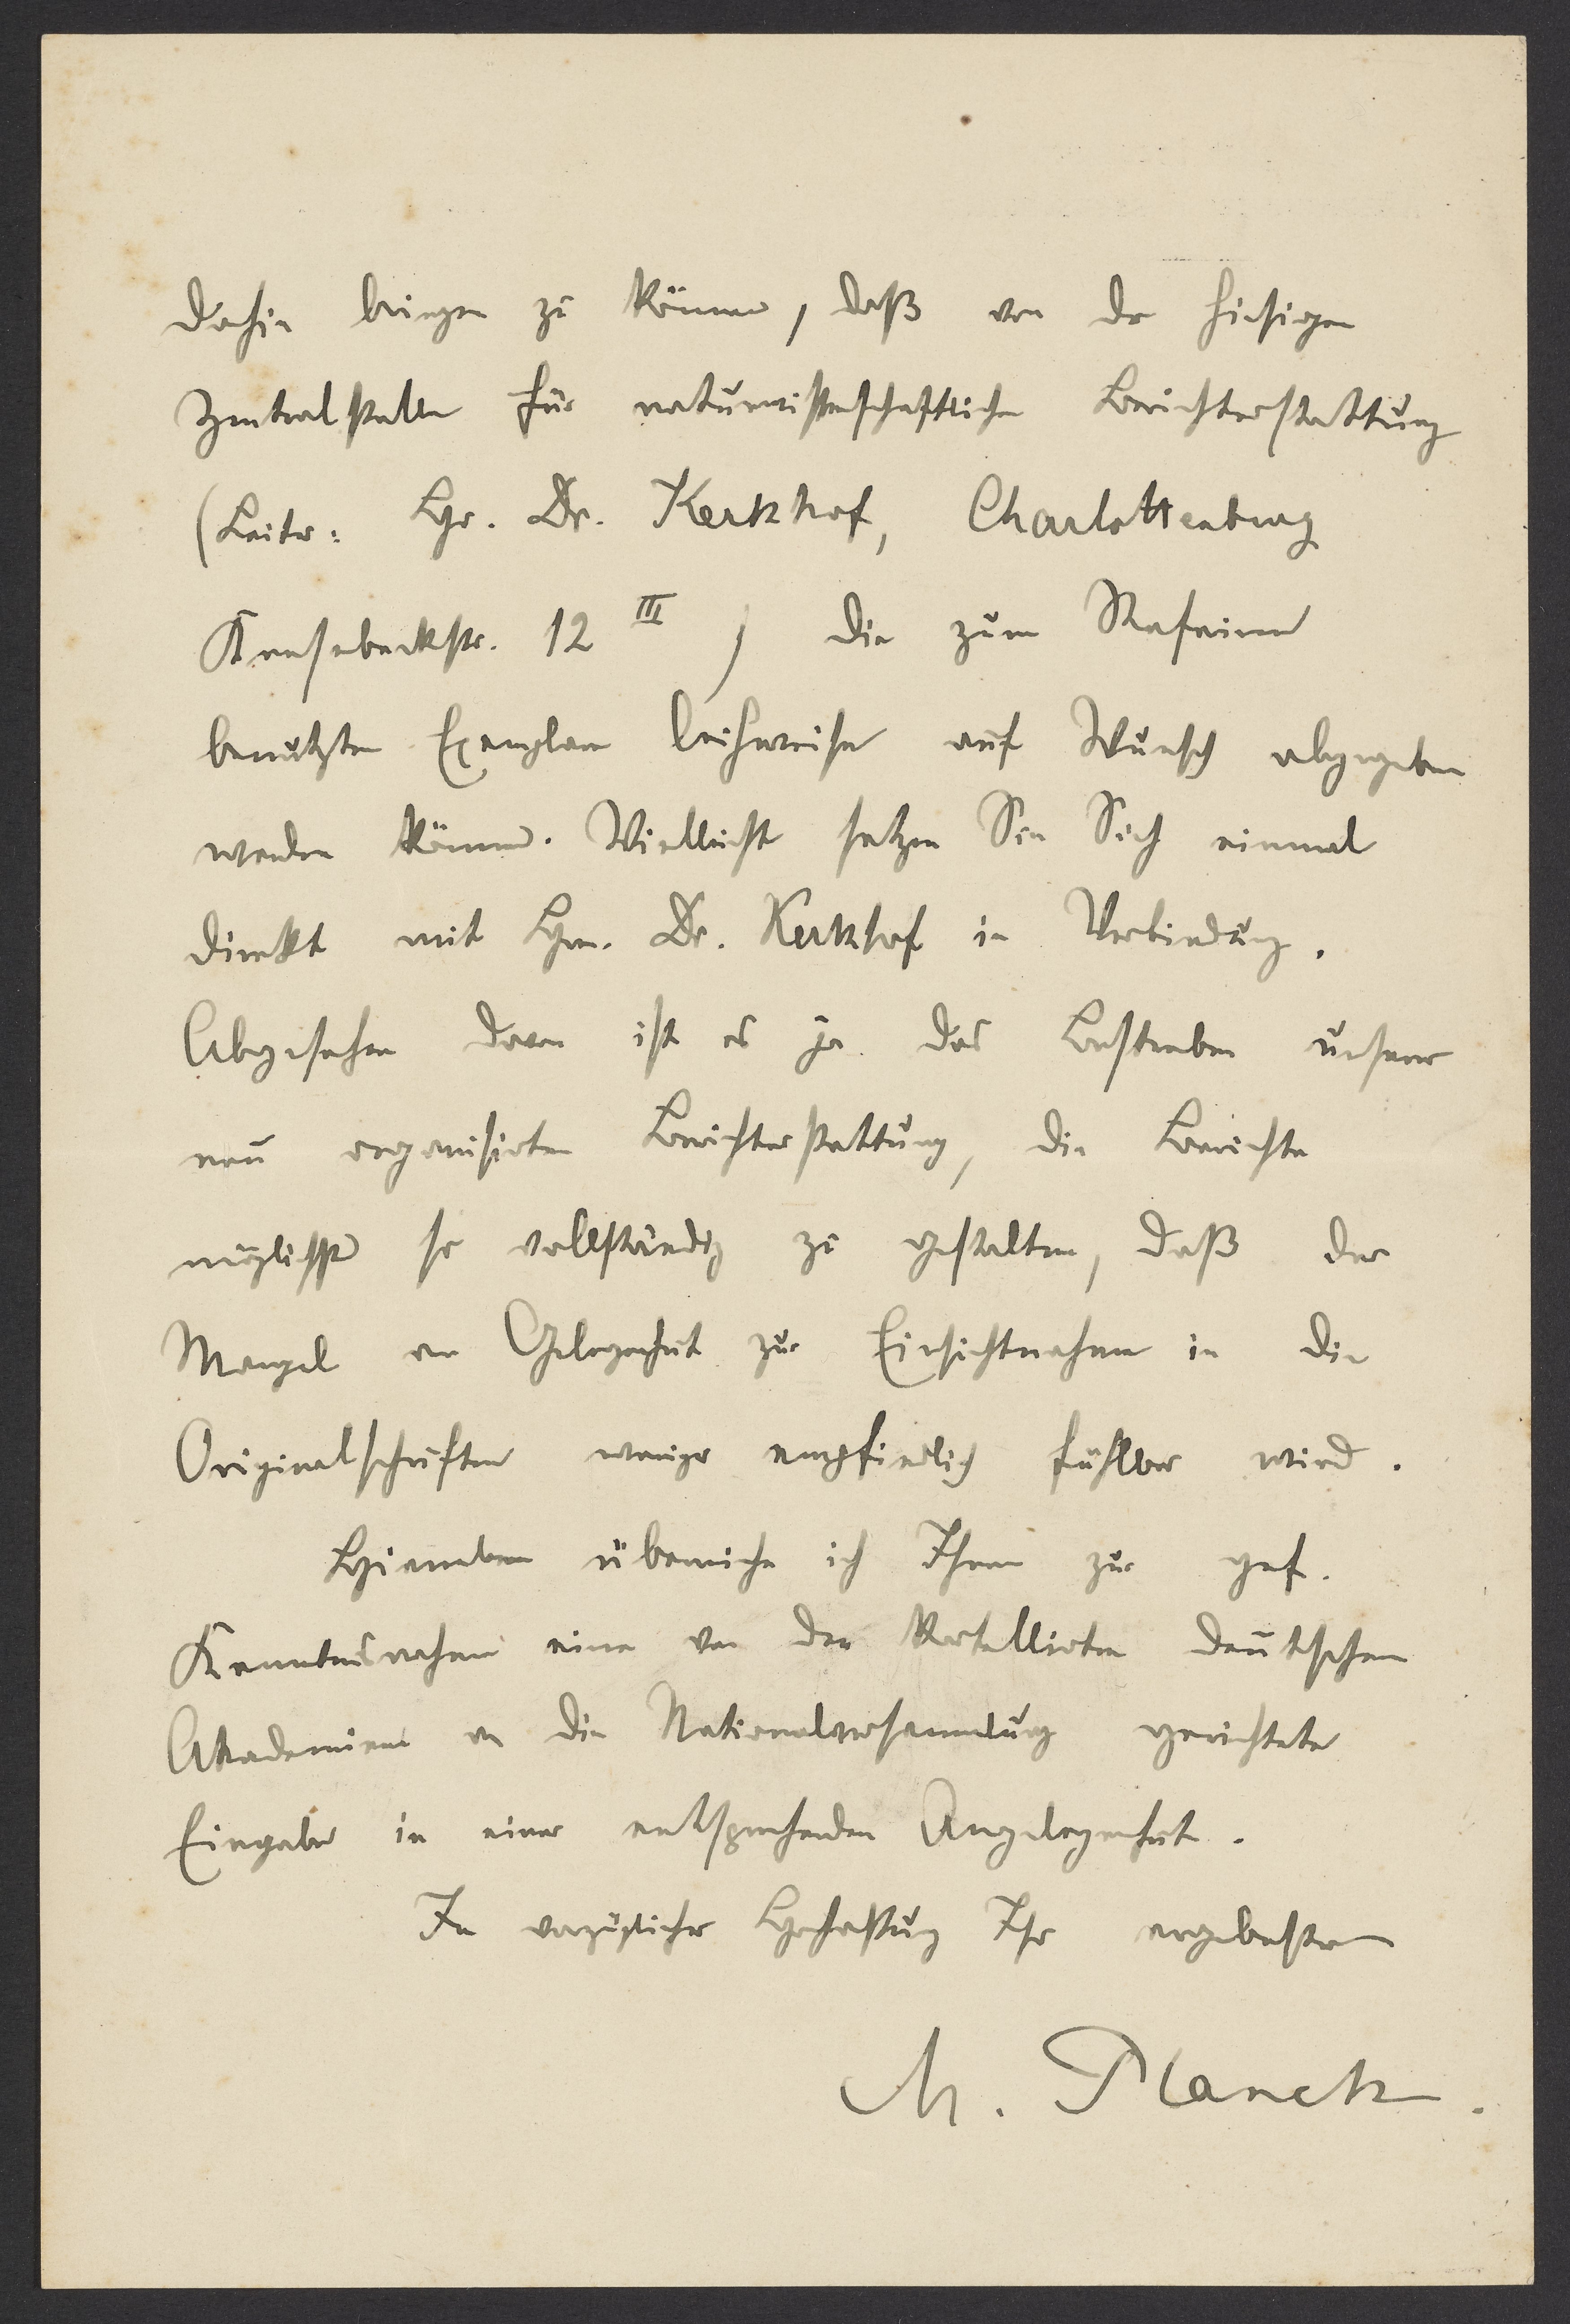 dahin bringen zu können, daß von der hiesigen
Zentralstelle für naturwissenschaftliche Berichterstattung
(Leiter: Hr. Dr. Kerkhof, Charlottenburg
Knesebeckstr. 12 III) die zum Referieren
benutzten Exemplare leihweise auf Wunsch abgegeben
werden können. Vielleicht setzen Sie Sich einmal
direkt mit Hrn. Dr. Kerkhof in Verbindung.
Abgesehen davon ist es ja das Bestreben unserer
neu organisirten Berichterstattung, die Berichte
möglichst so vollständig zu gestalten, daß der
Mangel an Gelegenheit zur Einsichtnahme in die
Originalschriften weniger empfindlich fühlbar wird.
Hierneben überreiche ich Ihnen zur gef.
Kenntnisnahme eine von den kartellirten deutschen
Akademien an die Nationalversammlung gerichtete
Eingabe in einer entsprechenden Angelegenheit.
In vorzüglicher Hochachtung Ihr ergebenster
M. Planck.